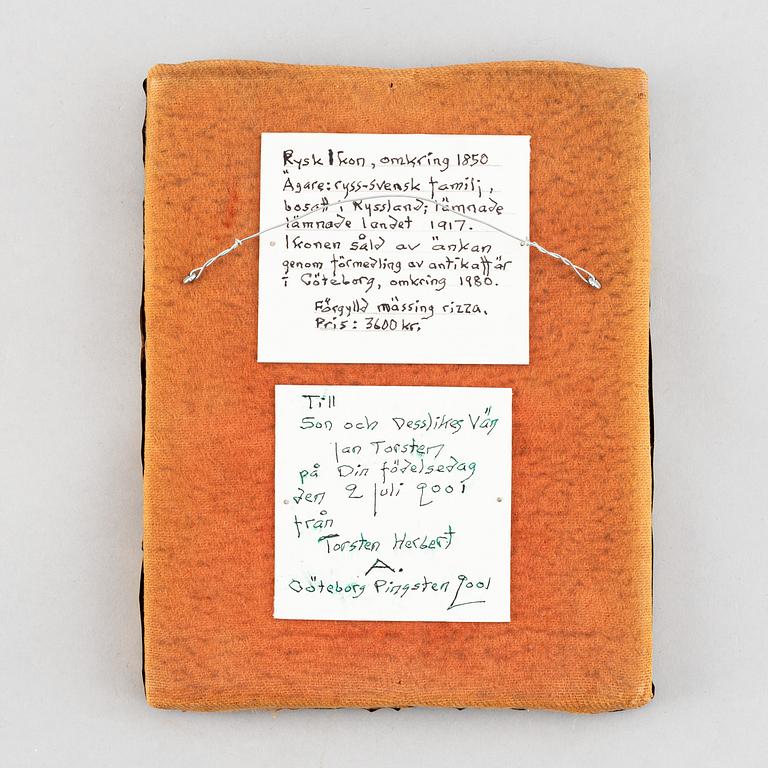 Rysk Ikon, omkring 1850
Ägare: ryss-svensk familj,
bosatt i Ryssland; lämnade
lämnade landet 1917.
Ikonen såld av änkan
genom förmedling av antikaffär
i Göteborg, omkring 1980.
Förgylld mässing rizza.
Pris: 3600 kr.
Till
Son och Desslikes Vän
Jan Torsten
på Din födelsedag
den 2 juli 2001
från
Torsten Herbert
A.
Göteborg Pingsten 2001